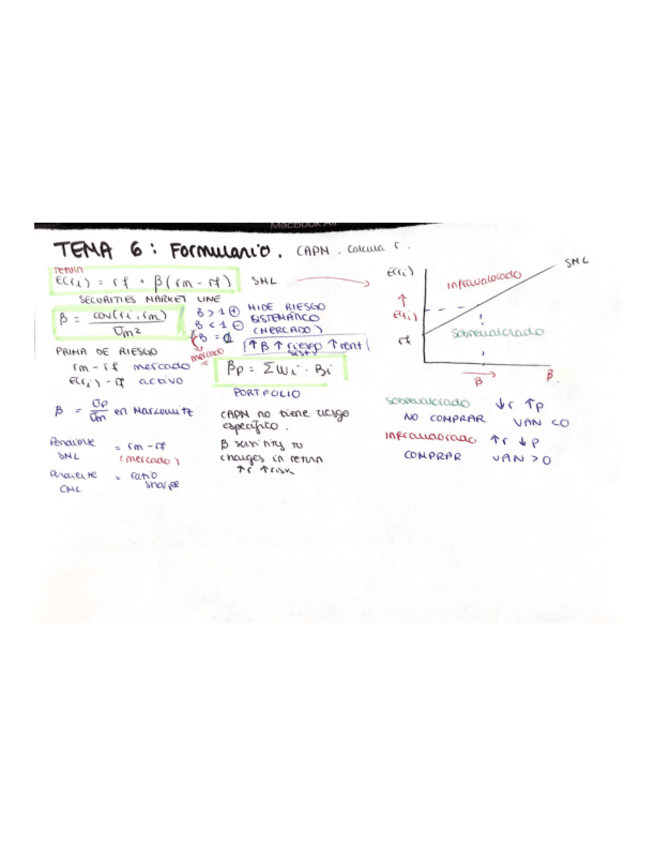 MacBook Air
TEMA 6: Formulario. CAPM. Calcula r.
return
E(ri) = rf + β(rm - rf) SML
SECURITIES MARKET LINE
β = cov(ri, rm) / σm²
β > 1 ⊕
β < 1 ⊖
MIDE RIESGO
SISTEMÁTICO
(MERCADO)
mercado
↑β ↑riesgo ↑rent
sist
PRIMA DE RIESGO
rm - rf mercado
E(ri) - rf activo
βp = Σwi · Bi
PORTFOLIO
β = σp / σm en Markowitz
Pendiente SML = rm - rf
(mercado)
Pendiente CML = ratio
sharpe
CAPM no tiene riesgo
específico.
β sensitivity to
changes in return
↑r ↑risk
E(ri)
↑
E(ri)
rf
infravalorado
sobrevalorado
SML
→
β
β
sobrevalorado ↓r ↑p
NO COMPRAR VAN <0
infravalorado ↑r ↓p
COMPRAR VAN >0